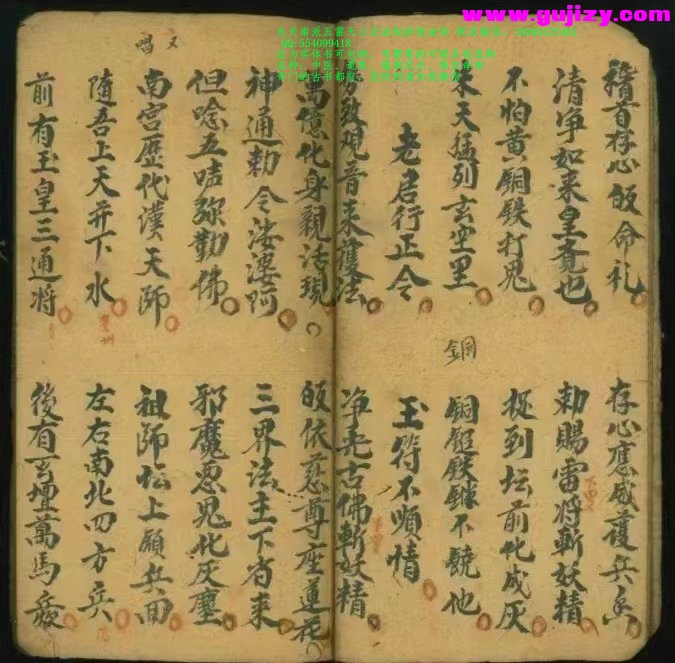 www.gujizy.com
QQ:554099418
稽首存心皈命礼 存心應感護兵
清净如来皇竟也 勅賜雷将斬妖精
不怕黄銅鉄打鬼 捉到坛前化成灰
来天猛列玄空里 铜鎚鉄鍊不饒他
銅
老君行正令 玉符不順情
致观音来護法 净光古佛斬妖精
萬億化身親活現 皈依慈尊座蓮花
神通勅令娑婆阿 三界法主下省来
但唸五弥勒佛 邪魔恶鬼化灰塵
又唱
南宫歷代漢天師 祖師坛上願兵面
随吾上天并下水 左右南北四方兵
前有玉皇三通将 後有玄壇萬馬發